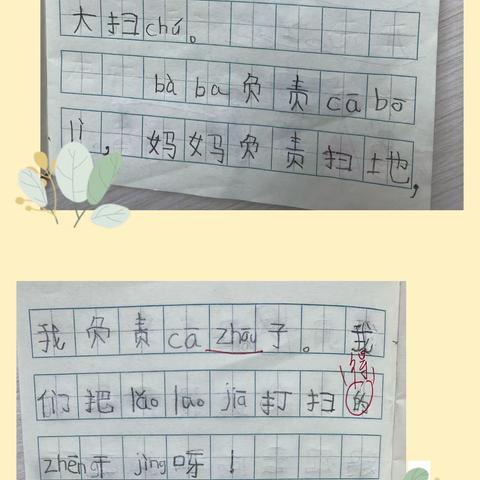 大扫chú。
bà ba负责cā bō
lì，妈妈负责扫地，
我负责cā zhāu子。我
得
们把lǎo lao jiā打扫的
zhēng干jìng呀！